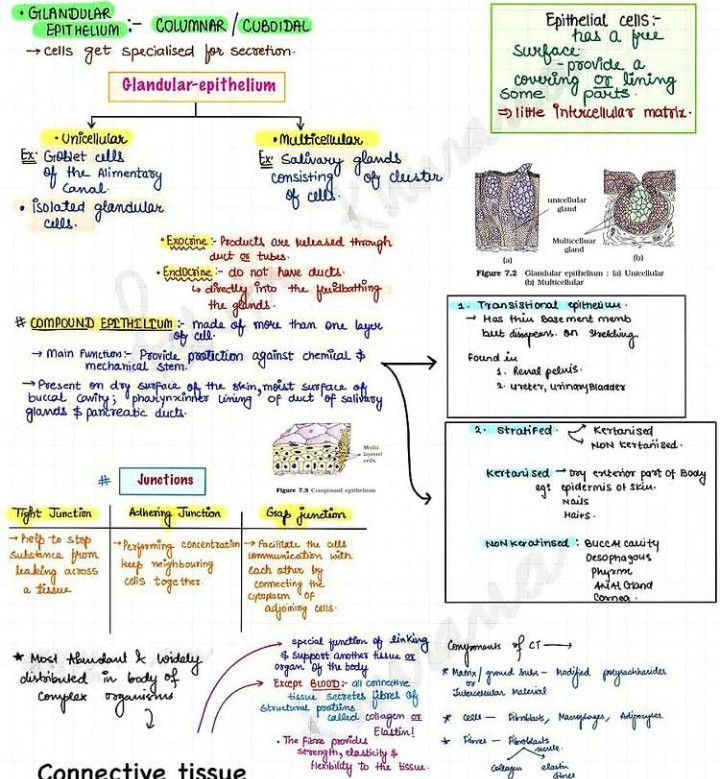 • GLANDULAR
EPITHELIUM :- COLUMNAR / CUBOIDAL
→ cells get specialised for secretion.
Glandular-epithelium
• Unicellular
Ex: Goblet cells
of the Alimentary
Canal.
• isolated glandular
cells.
• Multicellular
Ex: Salivary glands
consisting of cluster
of cells.
Epithelial cells:-
has a free
surface
- provide a
covering or lining
some parts.
⇒ little intercellular matrix.
• Exocrine :- Products are released through
duct or tubes.
• Endocrine :- do not have ducts.
↳ directly into the fluidbathing
the glands.
unicellular
gland
Multicelluar
gland
(a)
(b)
Figure 7.2 Glandular epithelium : (a) Unicellular
(b) Multicellular
# COMPOUND EPITHELIUM :- made of more than one layer
of cell.
→ Main Function:- Provide protection against chemical &
mechanical stem.
→ Present on dry surface of the skin, moist surface of
buccal cavity; pharynxinner lining of duct of salivary
glands & pancreatic ducts.
1. Transistional epithelium.
→ Has thin Basement memb
but disspears on
Found in
1. Renal pelvis.
2. ureter, urinaryBladder
Multi-
layered
cells
Figure 7.3 Compound epithelium
2. Stratifed
Kertanised
NON Kertanised.
Kertanised → Dry enterior part of Body
eg: epidermis of skin.
Nails
Hairs.
NON Keratinsed : BUCCAL cavity
Oesophagous
ANAL Gland
Cornea.
# Junctions
Tight Junction
→ help to stop
substance from
leaking across
a tissue
Adhering Junction
→ Performing concentration
keep neighbouring
cells together.
Gap junction
→ Facilitate the cells
communication with
each other by
connecting the
cytoplasm of
adjoining cells.
* Most Abundant & widely
distributed in body of
complex organisms
Connective tissue
special function of linking
& support another tissue or
organ of the body
• Except BLOOD:- all connective
tissue secretes fibres of
structural proteins
called collagen or
Elastin!
• The fibre provides
strength, elasticity &
flexibility to the tissue.
Components of CT →
* Matrix / ground subs - modified polysachharides
or
Intercellular Material
* cells - Fibroblasts, Macrophages, Adipocytes
* Fibres - Fibroblasts
collagen elastin